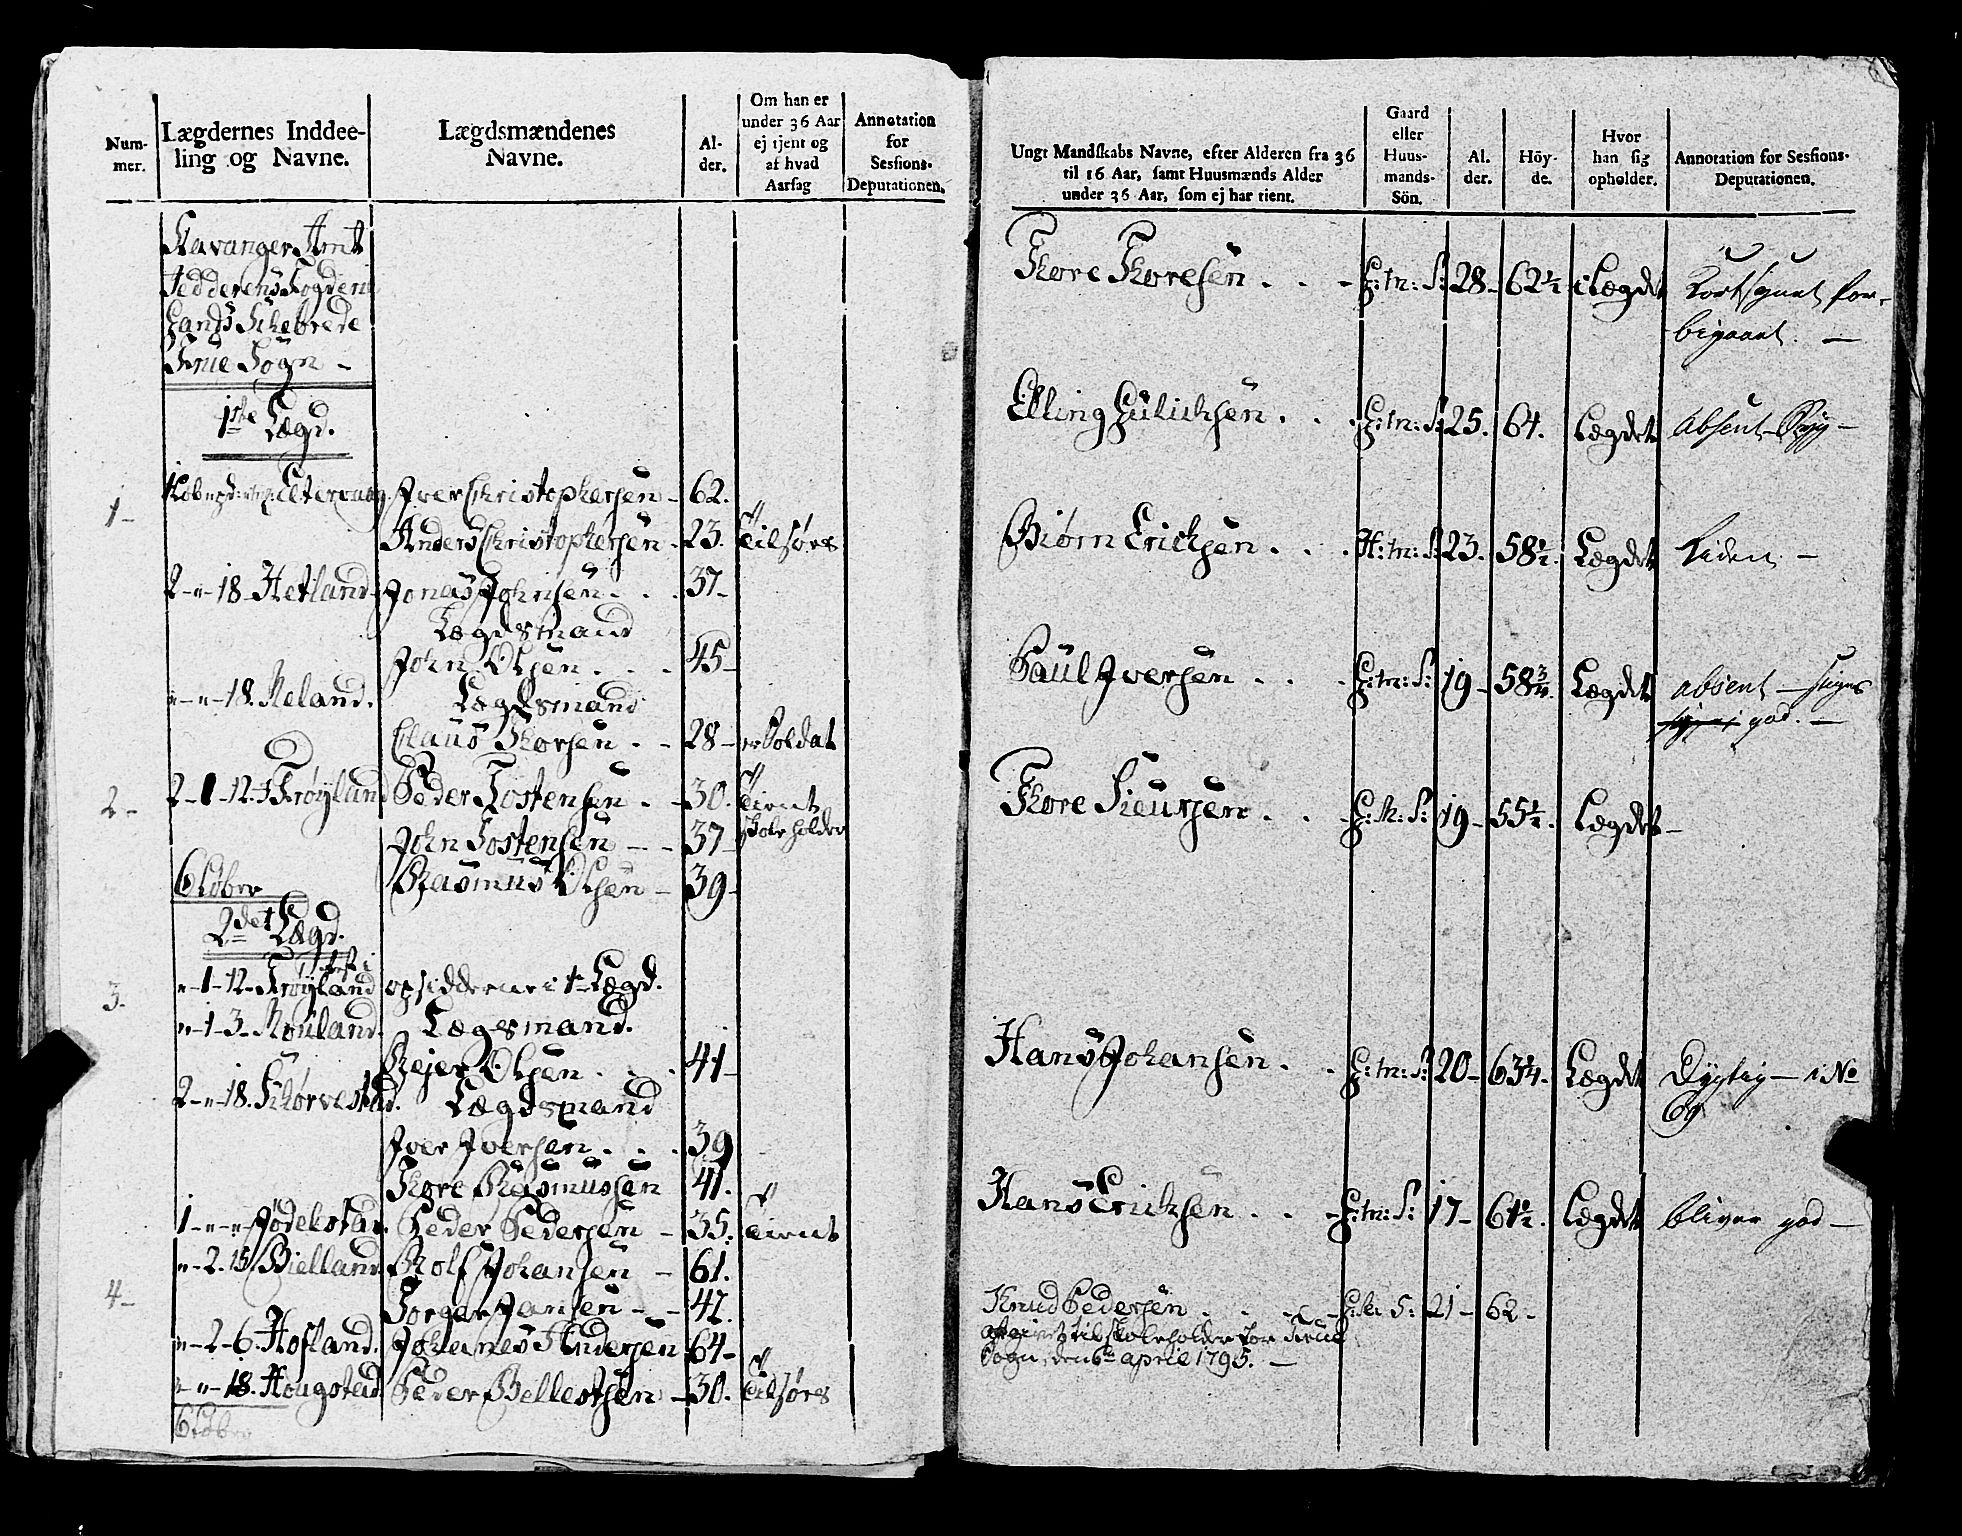 Num-
mer.
Lægdernes Inddee-
ling og Navne.
Lægdsmændenes
Navne.
Al-
der.
Om han er
under 36 Aar
ej tjent og
af hvad
Aarsag
Annotation
for
Sessions-
Deputationen.
Stavanger Amt
Jedderens Fogderie
Lands Schebrede
Frue Sogn -
1ste Lægd.
1- Iver Christophersen - 62.
Anders Christophersen - 23. Tilføres
2 - " - 18 - Hetland - Jonas Johnsen . . . 37 -
Lægdsmand
John Olsen . . . 45 -
" - " - 18. Meland. Lægdsmand
Claus Thorsen . - 28 - er Soldat
2 - 2 - 1 - 12 - Frøyland Peder Tostensen . - 30. Tient
John Tostensen - - 37 - Skoleholder
6 Løber Rasmus Olsen - 39 -
2det Lægd.
3. " - 1 - 12 - Frøyland opsidderne i 1te Lægd.
" - 1 - 3 - Rouland. Lægsmand.
Rejer Olsen . . . 41 -
2 - " - 18. Skørvestad. Lægdsmand
Iver Iversen . . . 39
Thore Rasmussen 41.
1 - " - " - Jødelstad. Peder Pedersen - 35. Tient
" - 2. 15 Bielland. Rolf Johansen - 61.
4 - Torger Jansen - - 47.
" - 2 - 6. Hofland. Johanes Andersen 64 -
" - " - 18. Hougstad. Peder Bellestsen - 30. Tilføres
6 Løber
Ungt Mandskabs Navne, efter Alderen fra 36
til 16 Aar, samt Huusmænds Alder
under 36 Aar, som ej har tient.
Gaard
eller
Huus-
mands-
Sön.
Al.
der.
Höy-
de.
Hvor
han sig
opholder.
Annotation for Sessions-
Deputationen.
Thore Thoresen . . - G: m: S: 28 - 62 1/2 i Lægdet Kortsynet for-
bigaaet. -
Elling Gulichsen . . . G: m: S: 25. 64. Lægdet absent - Syg -
Biørn Erichsen . . . H: m: S: 23. 58 1/2. Lægdet Liden -
Paul Iversen . . - G: m: S: 19 - 58 3/4 Lægdet absent - siges
god. -
Thore Sieursen . . - G: m: S: 19 - 55 1/2. Lægdet -
Hans Johansen . . G: m: S: 20 - 63 1/4. Lægdet Dygtig - i No
69
Hans Erichsen . . - G: m: S: 17 - 61 1/2. Lægdet bliver god -
Knud Pedersen . . - G: m: S: 21 - 62 -
til Skoleholder for Frue
Sogn, den 6te april 1795. -